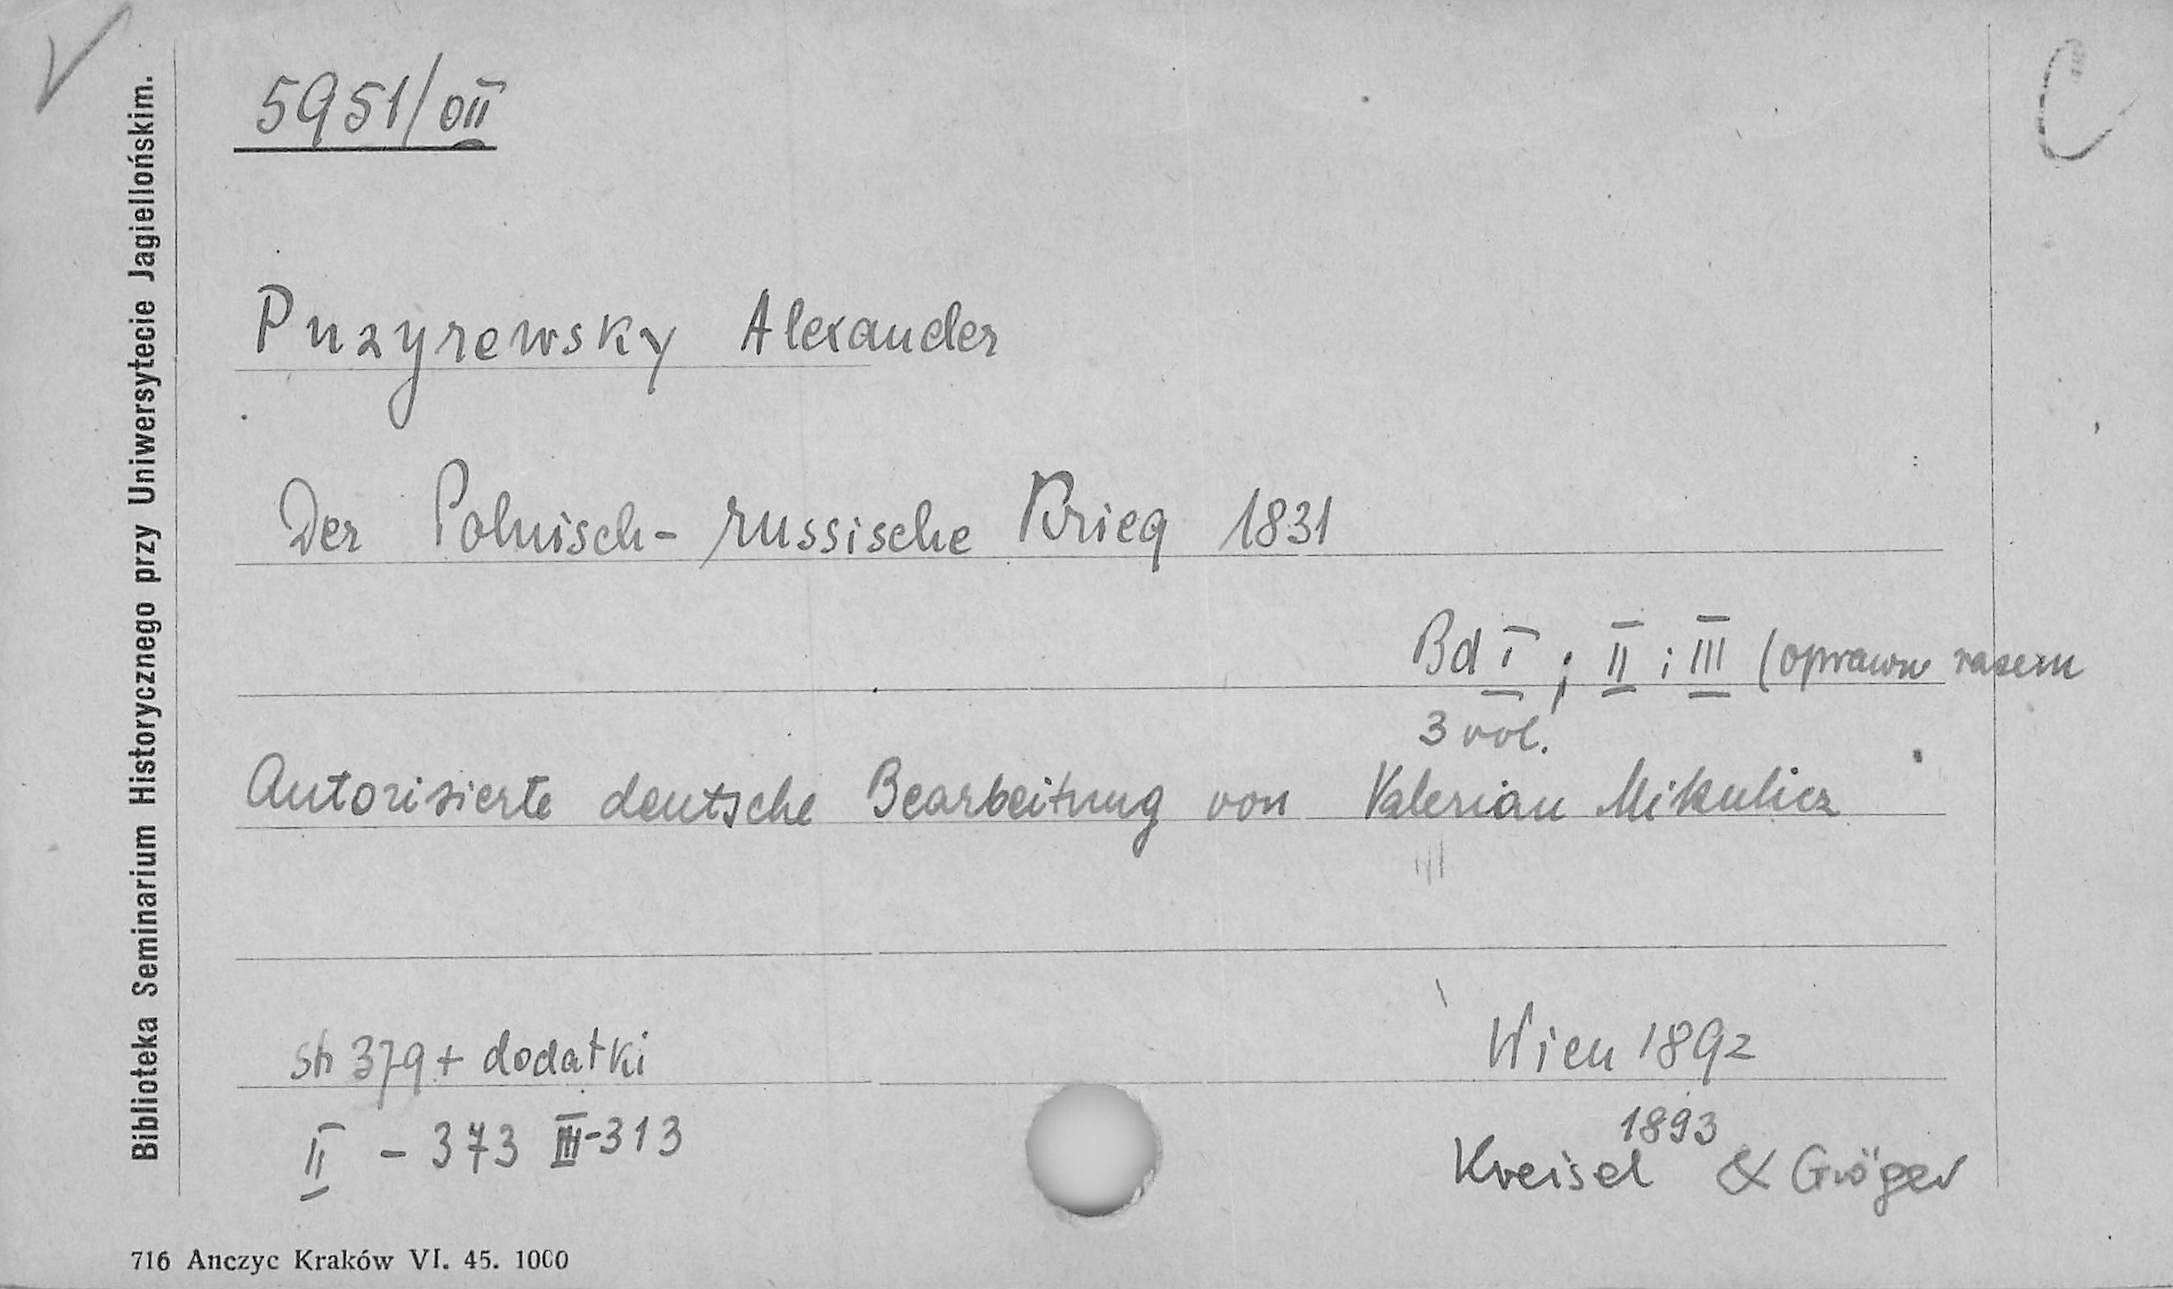 5951/0II
Puzyrewsky Alexander
Der Polnisch-russische Krieg 1831
Bd I; II i III (oprawne razem
3 vol.
Autorisierte deutsche Bearbeitung von Valerian Mikulicz
str 379 + dodatki
Wien 1892
1893
II - 373 III-313
Kreisel & Gröger
Biblioteka Seminarium Historycznego przy Uniwersytecie Jagiellońskim.
716 Anczyc Kraków VI. 45. 1000